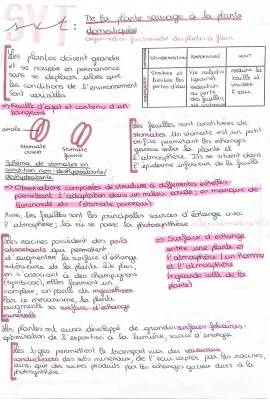 SVT : De la plante sauvage à la plante
domestiquée
organisation fonctionnelle des plantes à fleurs
Les plantes doivent grandir
et se nourrir en permanence
sans se déplacer alors que
les conditions de l'environnement
sont variables.
DÉSHYDRATATION TEMPÉRATURE VENT
Stocker et
limiter les
pertes d'eau
⇒ Feuille d'oyat et contenu d'un
ostiole
Stomate
ouvert
Stomate
fermé
Schéma de stomates en
condition non-déshydratante/
déshydratante
Les feuilles sont constituées de
stomates. Un stomate est un petit
orifice permettant les échanges
de gaz entre la plante et
l'atmosphère. Ils se situent dans
l'épiderme inférieur de la feuille
⇒ Observations comparées de structure à différentes échelles
permettant l'adaptation dans un milieu aride, en manque de
luminosité etc. (stomate poireau)
Ainsi, les feuilles sont les principales surfaces d'échange avec
l'atmosphère, là où se passe la photosynthèse
Les racines possèdent des poils
absorbants qui permettent
d'augmenter la surface d'échange
souterraine de la plante. De plus,
en s'associant à des champignons
(symbiose), elles forment un
complexe, on parle de mycorhizes
Par ce mécanisme, la plante
augmente sa surface d'échange
minérale
⇒ Surface d'échange
entre une plante et
l'atmosphère / un homme
et l'atmosphère
(grande celle de la
plante)
Les plantes ont aussi développé de grandes surfaces foliaires :
optimisation de l'exposition à la lumière, source d'énergie.
Les tiges permettent le transport via des vaisseaux
conducteurs des sels minéraux, de l'eau captée par les racines,
ainsi que des sucres produits par les échanges gazeux dues à la
photosynthèse